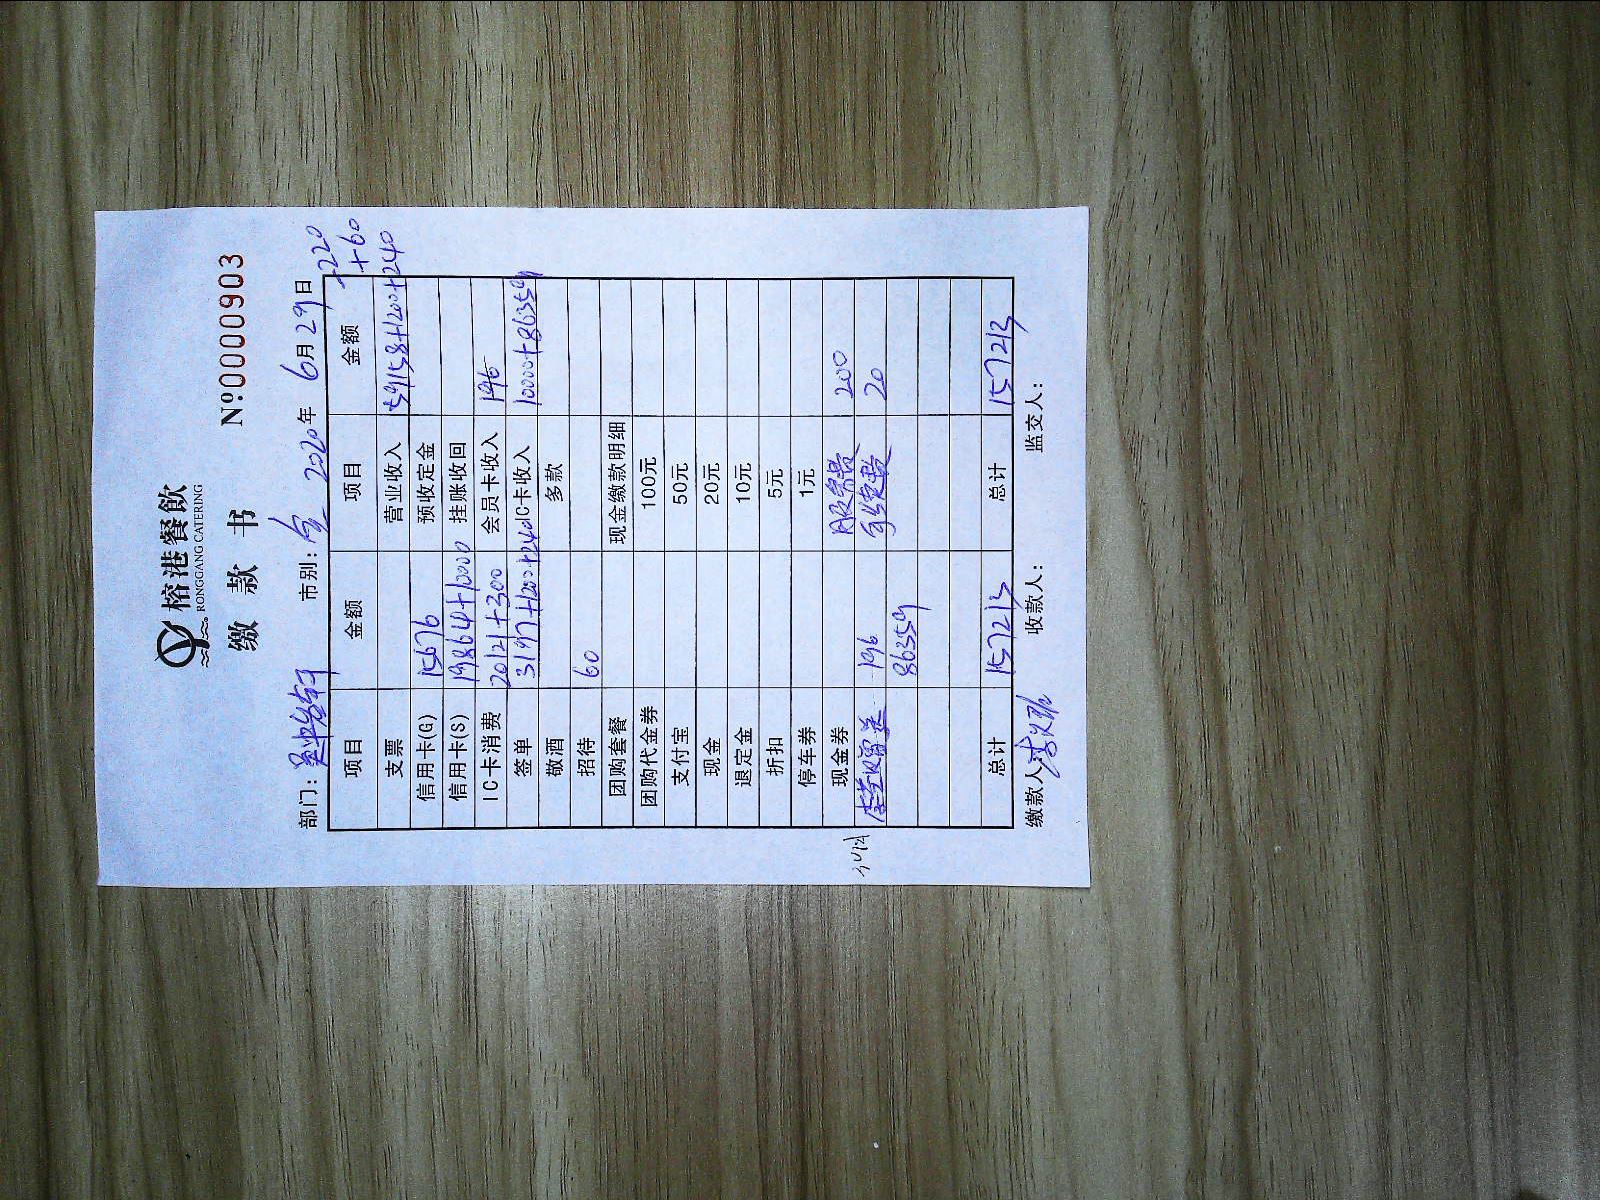 榕港餐飲
RONGGANG CATERING
缴 款 书
Nº0000903
部门: 市别: 全 2020年 6月29日
-220
+60
项目 金额 项目 金额
支票 营业收入 59158+1200+240
信用卡(G) 15676 预收定金
信用卡(S) 19864+10000 挂账收回
IC卡消费 20121+300 会员卡收入 196
签单 3197+1200+240 IC卡收入 10000+86359
敬酒 多款
招待 60
团购套餐 现金缴款明细
团购代金券 100元
支付宝 50元
现金 20元
退定金 10元
折扣 5元
停车券 1元
现金券 服务费 200
赠送 196 手续费 20
86359
总计 157213 总计 157213
缴款人: 收款人: 监交人: